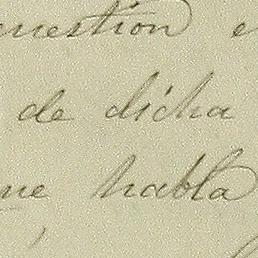 cuestion e
de dicha
que habla